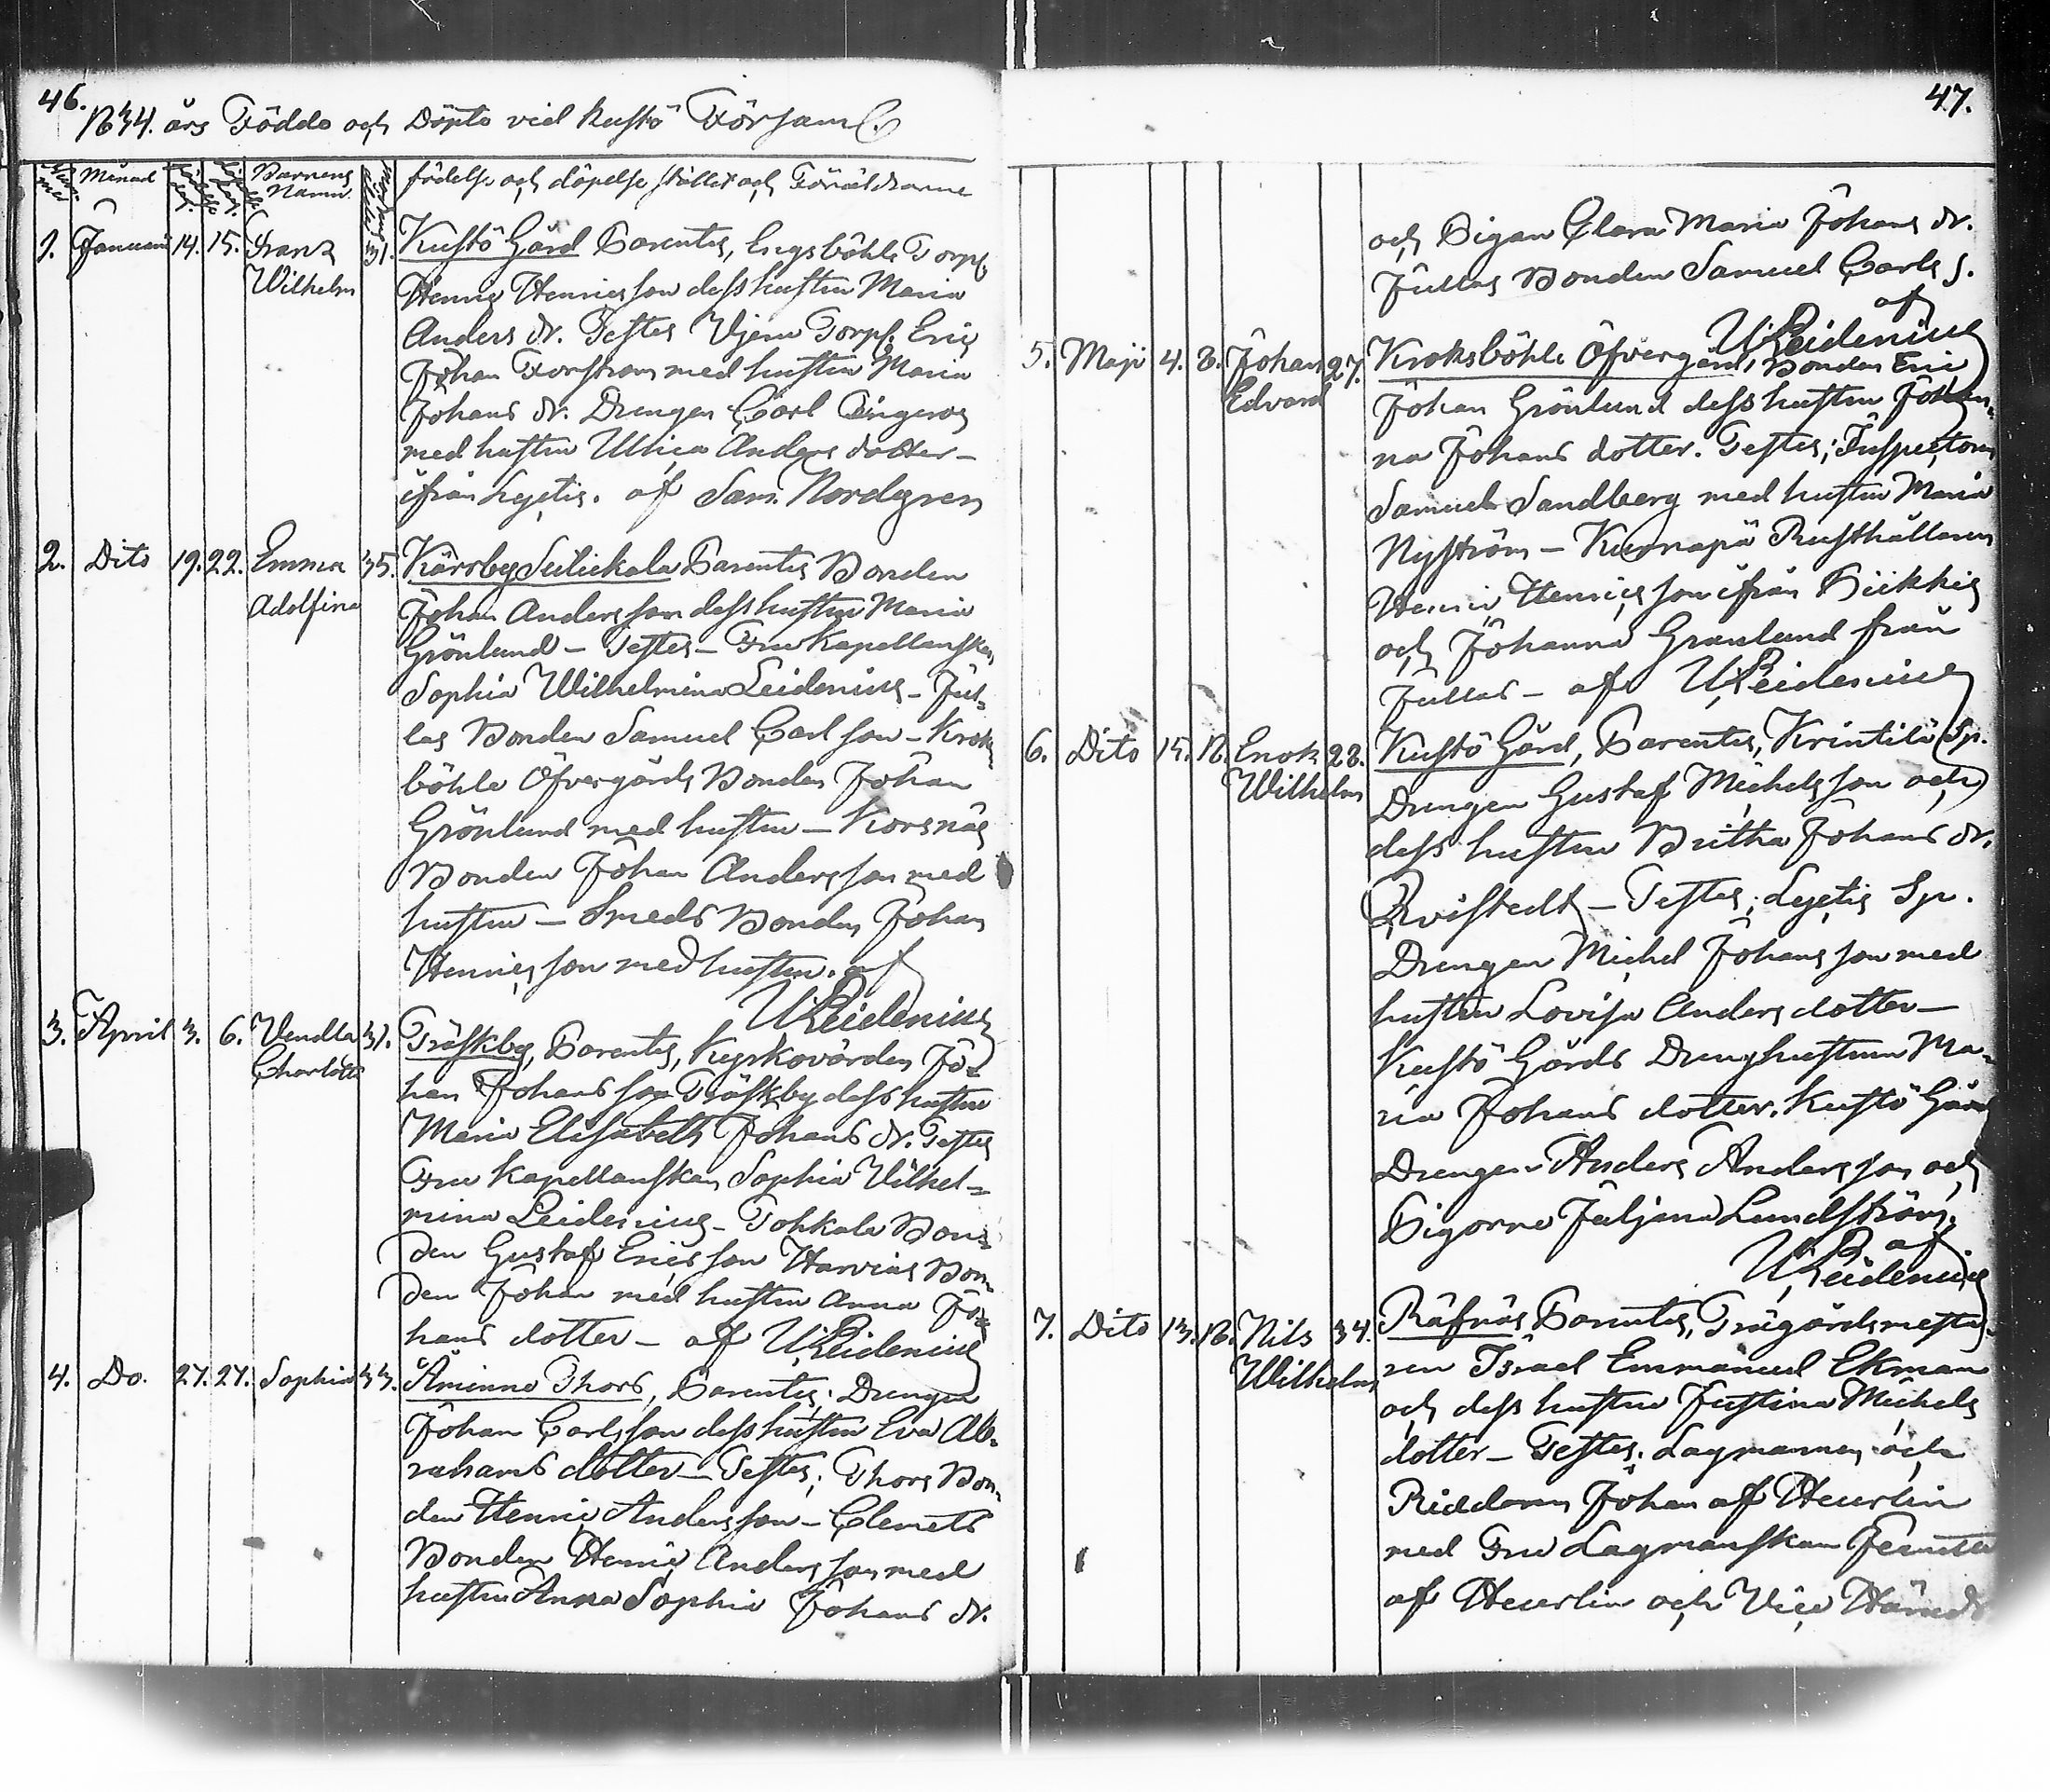 46.
1834. års Födde och Döpte vid Kustö Församl.
Månad Barnens Namn födelse och döpelse stället och Föräldrarne
1. Januari 14. 15. Franz Wilhelm 31. Kustö Gård Parentes, Engsböhle Torp.
Henric Henricsson dess hustru Maria
Anders dr. Testes Torp. Eric
Johan Forsstrom med hustru Maria
Johans dr. Drengen Carl
med hustru Ulrica Anders dotter –
ifrån Lejetis. af Sam. Nordgren
2. Dito 19. 22. Emma Adolfina 35. Kärrby Seilickala Parentes Bonden
Johan Andersson dess hustru Maria
Grönlund – Testes – Fru Kapellanskan
Sophia Wilhelmina Leidenius – Jul-
las Bonden Samuel Carlson – Kroks
böhle Öfvergårds Bonden Johan
Grönlund med hustru – Korsnäs
Bonden Johan Andersson med
hustru – Smeds Bonden Johan
Henricsson med hustru. af
Leidenius
3. April 3. 6. Vendla Charlotta 31. Träskby, Parentes, Kyrkovärden Jo-
han Johansson Träskby dess hustru
Maria Elisabeth Johans dr. Testes
Fru Kapellanskan Sophia Vilhel-
mina Leidenius – Tohkala Bon-
den Gustaf Ericsson Harvias Bon-
den Johan med hustru Anna Jo-
hans dotter – af Leidenius
4. Do. 27. 27. Sophia 33. Thors, Parentes; Drengen
Johan Carlsson dess hustru Eva Ab-
rahams dotter – Testes; Thors Bon-
den Henric Andersson – Clemets
Bonden Henric Andersson med
hustru Anna Sophia Johans dr.
47.
och Pigan Clara Maria Johans dr.
Jullas Bonden Samuel Carls s.
af
Leidenius
5. Maji 4. 8. Johan Edvard 27. Kroksböhle Öfvergård, Bonden Eric
Johan Grönlund dess hustru Johan-
na Johans dotter. Testes; Inspectoren
Samuel Sandberg med hustru Maria
Nyström – Kurnapä Rusthållaren
Henric Henricsson ifrån Piikkis
och Johanna Granlund från
Jullas – af Leidenius
6. Dito 15. 18. Enok Wilhelm 28. Kustö Gård, Parentes, Krintilä Sp.
Drengen Gustaf Michelsson och
dess hustru Britha Johans dr.
Qvistedt – Testes; Lejetis Sp.
Drengen Michel Johansson med
hustru Lovisa Anders dotter –
Kustö Gårds Dreng hustrun Ma-
ria Johans dotter. Kustö Gårds
Drengen Anders Andersson och
Pigorne Juljana Lundström.
af
Leidenius
7. Dito 13. 18. Nils Wilhelm 34. Räfnäs Parentes, Trägårdsmesta-
ren Israel Emmanuel Ekman
och dess hustru Justina Michels
dotter – Testes. Lagmannen och
Riddaren Johan af Heurlin
med Fru Lagmanskan
af Heurlin och Vice Härads